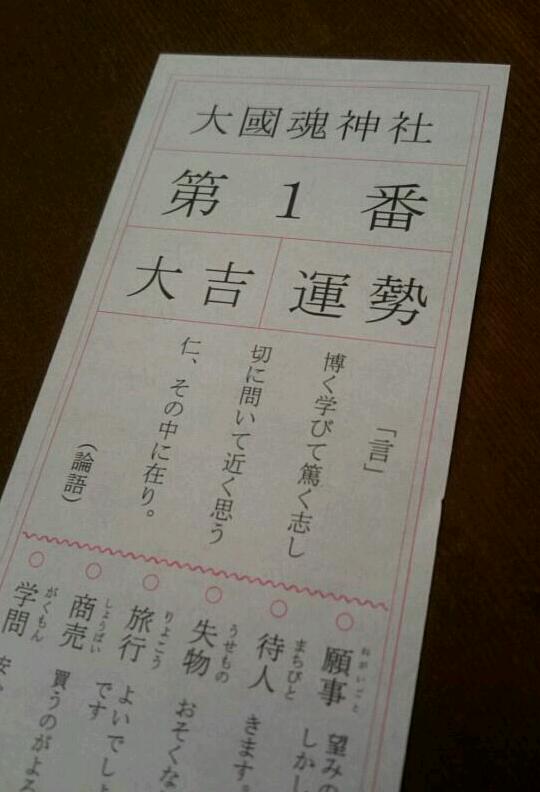 大國魂神社
第1番
運勢 大吉
「言」
博く学びて篤く志し
切に問いて近く思う
仁、その中に在り。
(論語)
○願事 望みの
しかし
ねがいごと
○待人 きます。
まちびと
○失物 おそくな
うせもの
○旅行 よいでしょ
りょこう
です
○商売 買うのがよろ
しょうばい
○学問 安
がくもん